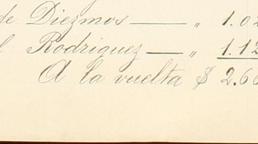 de Diezmos — „ 1.02
Rodriguez — „ 1.12
A la vuelta $ 2.6